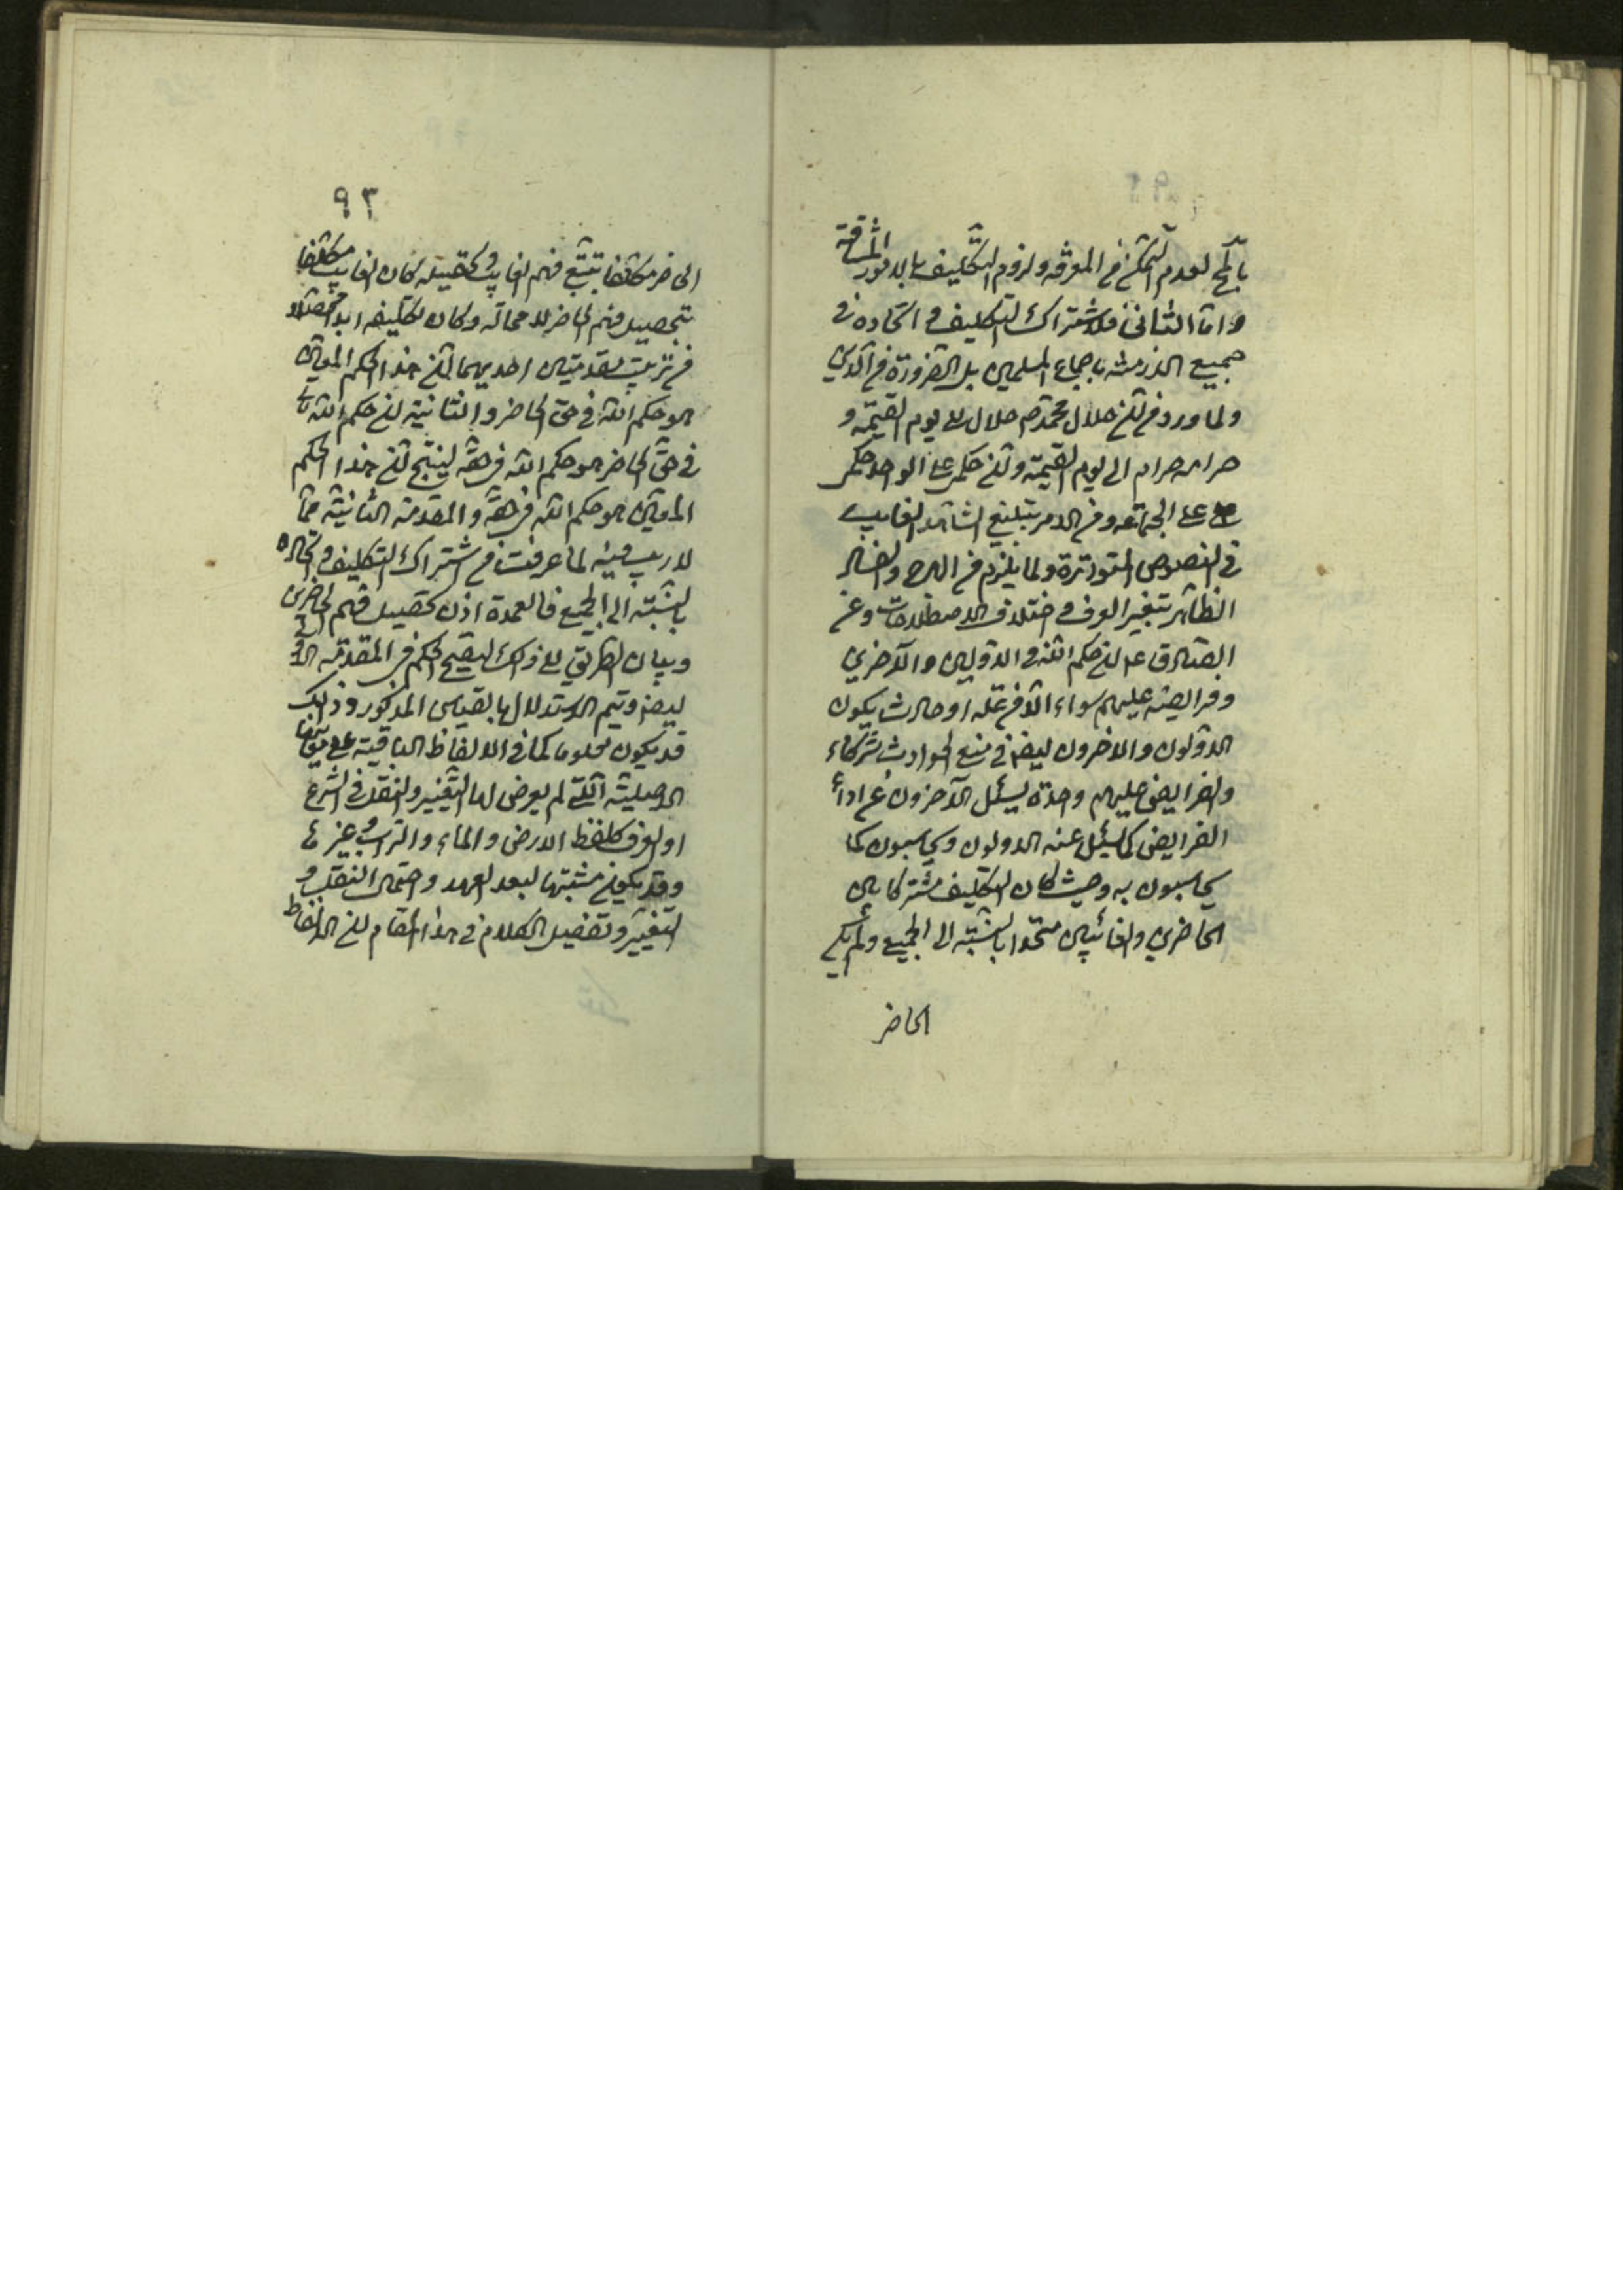 بالحكم لعدم التمكن من المعرفة ولزوم التكليف بالامور الشاقة
واما الثانى فلاشتراك التكليف و اتحاده فى
جميع الازمنة باجماع المسلمين بل الضرورة من الدين
ولما ورد من ان حلال محمد ص حلال الى يوم القيمة و
حرامه حرام الى يوم القيمة وان حكمى على الواحد حكمى
على الجماعة ومن الامر بتبليغ الشاهد الغايب
فى النصوص المتواترة ولما يلزم من الهرج و
الظاهر بتغير العرف و اختلاف الاصطلاحات وعن
الصادق ع ان حكم الله فى الاولين والآخرين
وفرايضه عليهم سواء الا من علة او حادث يكون
الاولون والاخرون ايضا فى منع الحوادث شركاء
والفرايض عليهم واحدة يسئل الآخرون عن اداء
الفرايض كما يسئل عنه الاولون ويحاسبون كما
يحاسبون به وحيث كان التكليف مشتركا بين
الحاضرين والغائبين متحدا بالنسبة الى الجميع ولم يكن
الحاضر
٩٣
الحاضر مكلفا بتتبع فهم الغايب و تحصيله كان الغايب مكلفا
بتحصيل فهم الحاضر لا محالة وكان تكليفه ابدا
من ترتيب مقدمتين احديهما ان هذا الحكم المعين
هو حكم الله فى حق الحاضر والثانية ان حكم الله تعالى
فى حق الحاضر هو حكم الله فى حقه لينتج ان هذا الحكم
المعين هو حكم الله فى حقه والمقدمة الثانية مما
لا ريب فيه لما عرفت من اشتراك التكليف و اتحاده
بالنسبة الى الجميع فالعمدة اذن تحصيل فهم الحاضرين
وبيان الطريق الى ذلك ليصح الحكم فى المقدمة الاولى
ايضا ويتم الاستدلال بالقياس المذكور وذلك
قد يكون معلوما كما فى الالفاظ الباقية على معانيها
الاصلية التى لم يعرض لها التغيير والنقل فى الشرع
او العرف كلفظ الارض والماء والتراب و غيرها
وقد يكون مشتبها لبعد العهد و احتمال النقل و
التغيير وتفصيل الكلام فى هذا المقام ان الالفاظ